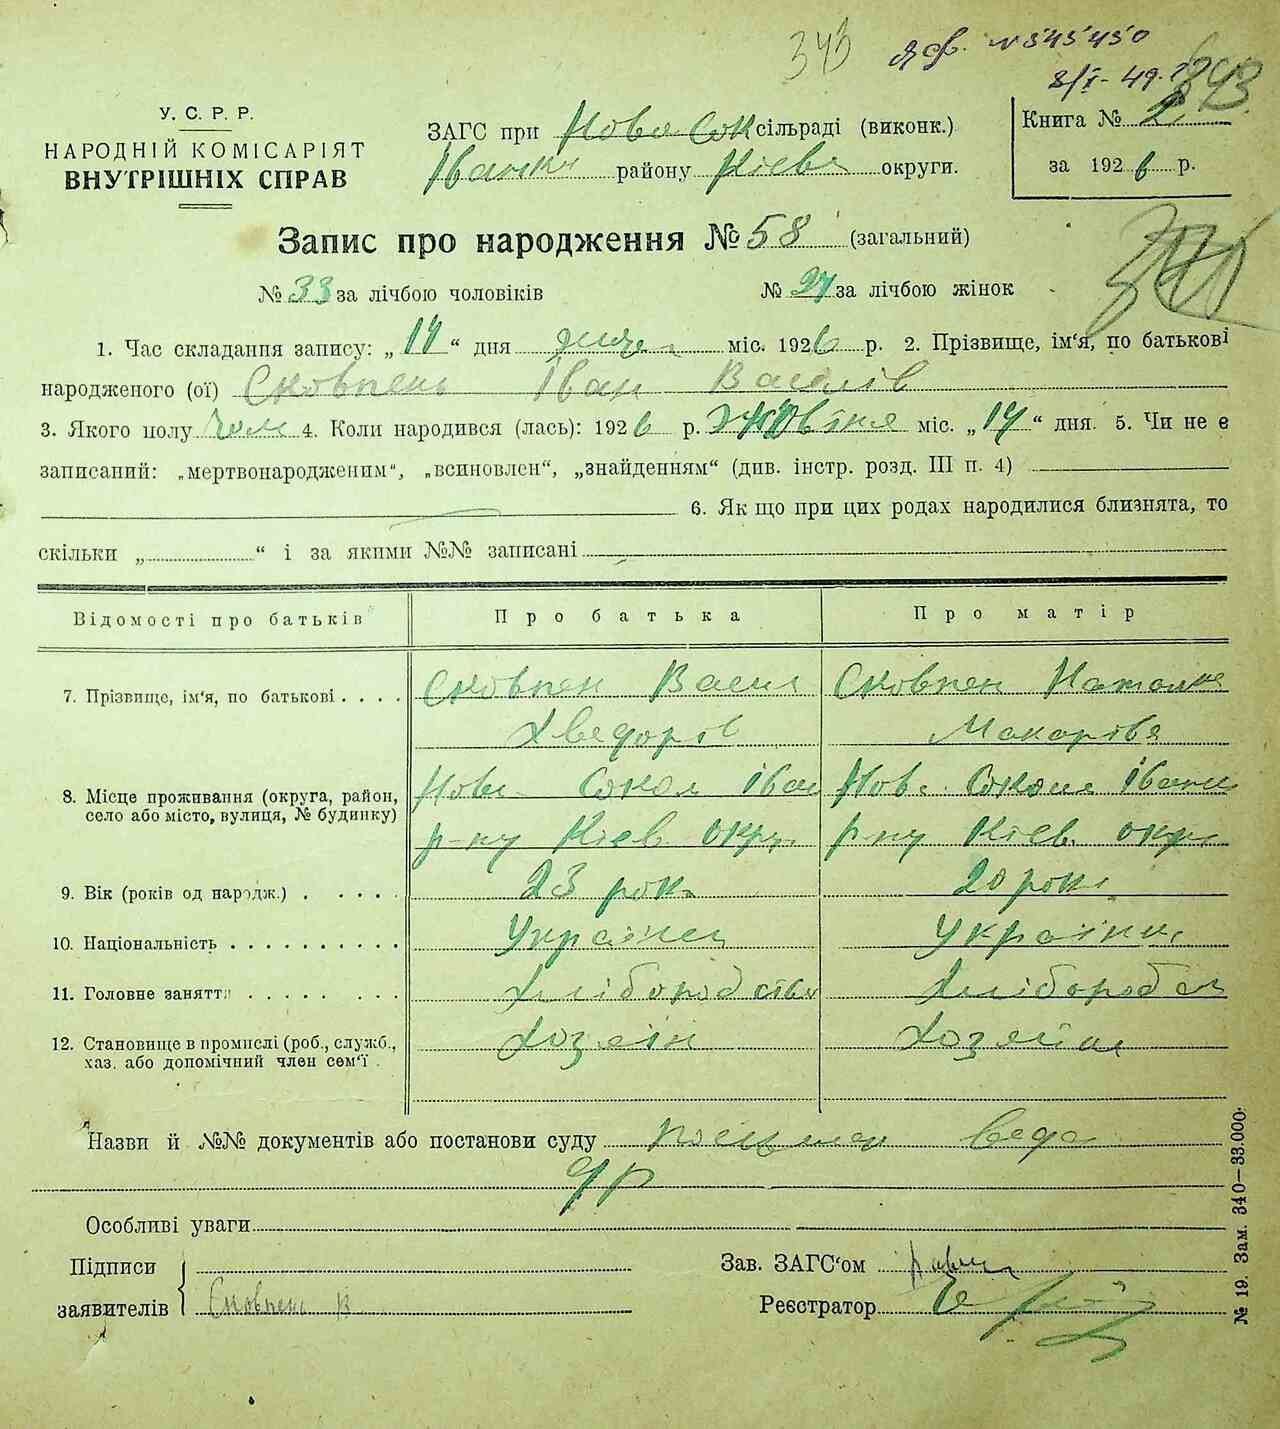 343
N 545450
8/I - 49.
343
У. С. Р. Р.
НАРОДНІЙ КОМІСАРІЯТ
ВНУТРІШНІХ СПРАВ
ЗАГС при Ново Сок сільраді (виконк.)
Іванки району Київ округи.
Книга № 2
за 1926 р.
Запис про народження № 58 (загальний)
№ 33 за лічбою чоловіків № 24 за лічбою жінок
1. Час складання запису: „ 14 “ дня міс. 1926 р. 2. Прізвище, ім'я, по батькові
народженого (ої) Сковпень Іван Василів
3. Якого полу чол 4. Коли народився (лась): 1926 р. жовтня міс. „ 14 “ дня. 5. Чи не є
записаний: „мертвонародженим“, „всиновлен“, „знайденням“ (див. інстр. розд. III п. 4)
6. Як що при цих родах народилися близнята, то
скільки „ “ і за якими №№ записані
Відомості про батьків Про батька Про матір
7. Прізвище, ім'я, по батькові . . . . Сковпен Васил Сковпен Наталка
Хведорів Макарівя
8. Місце проживання (округа, район, Нове Сокол Іван Нове Соколи Іванк
село або місто, вулиця, № будинку) р-ну Київ. окру р-ну Київ. окру
9. Вік (років од народж.) . . . . . 23 рок 20 рокі
10. Національність . . . . . . . . . . Українец Україінк
11. Головне заняття . . . . . . . . Хлібороб ство Хлібороб ст
12. Становище в промислі (роб., служб., Хозяін Хозяйк
хаз. або допомічний член сем'ї .
Назви й №№ документів або постанови суду
Особливі уваги
Підписи
заявителів Сковпень В
Зав. ЗАГС'ом
Реєстратор
№ 19. Зам. 340—33.000.